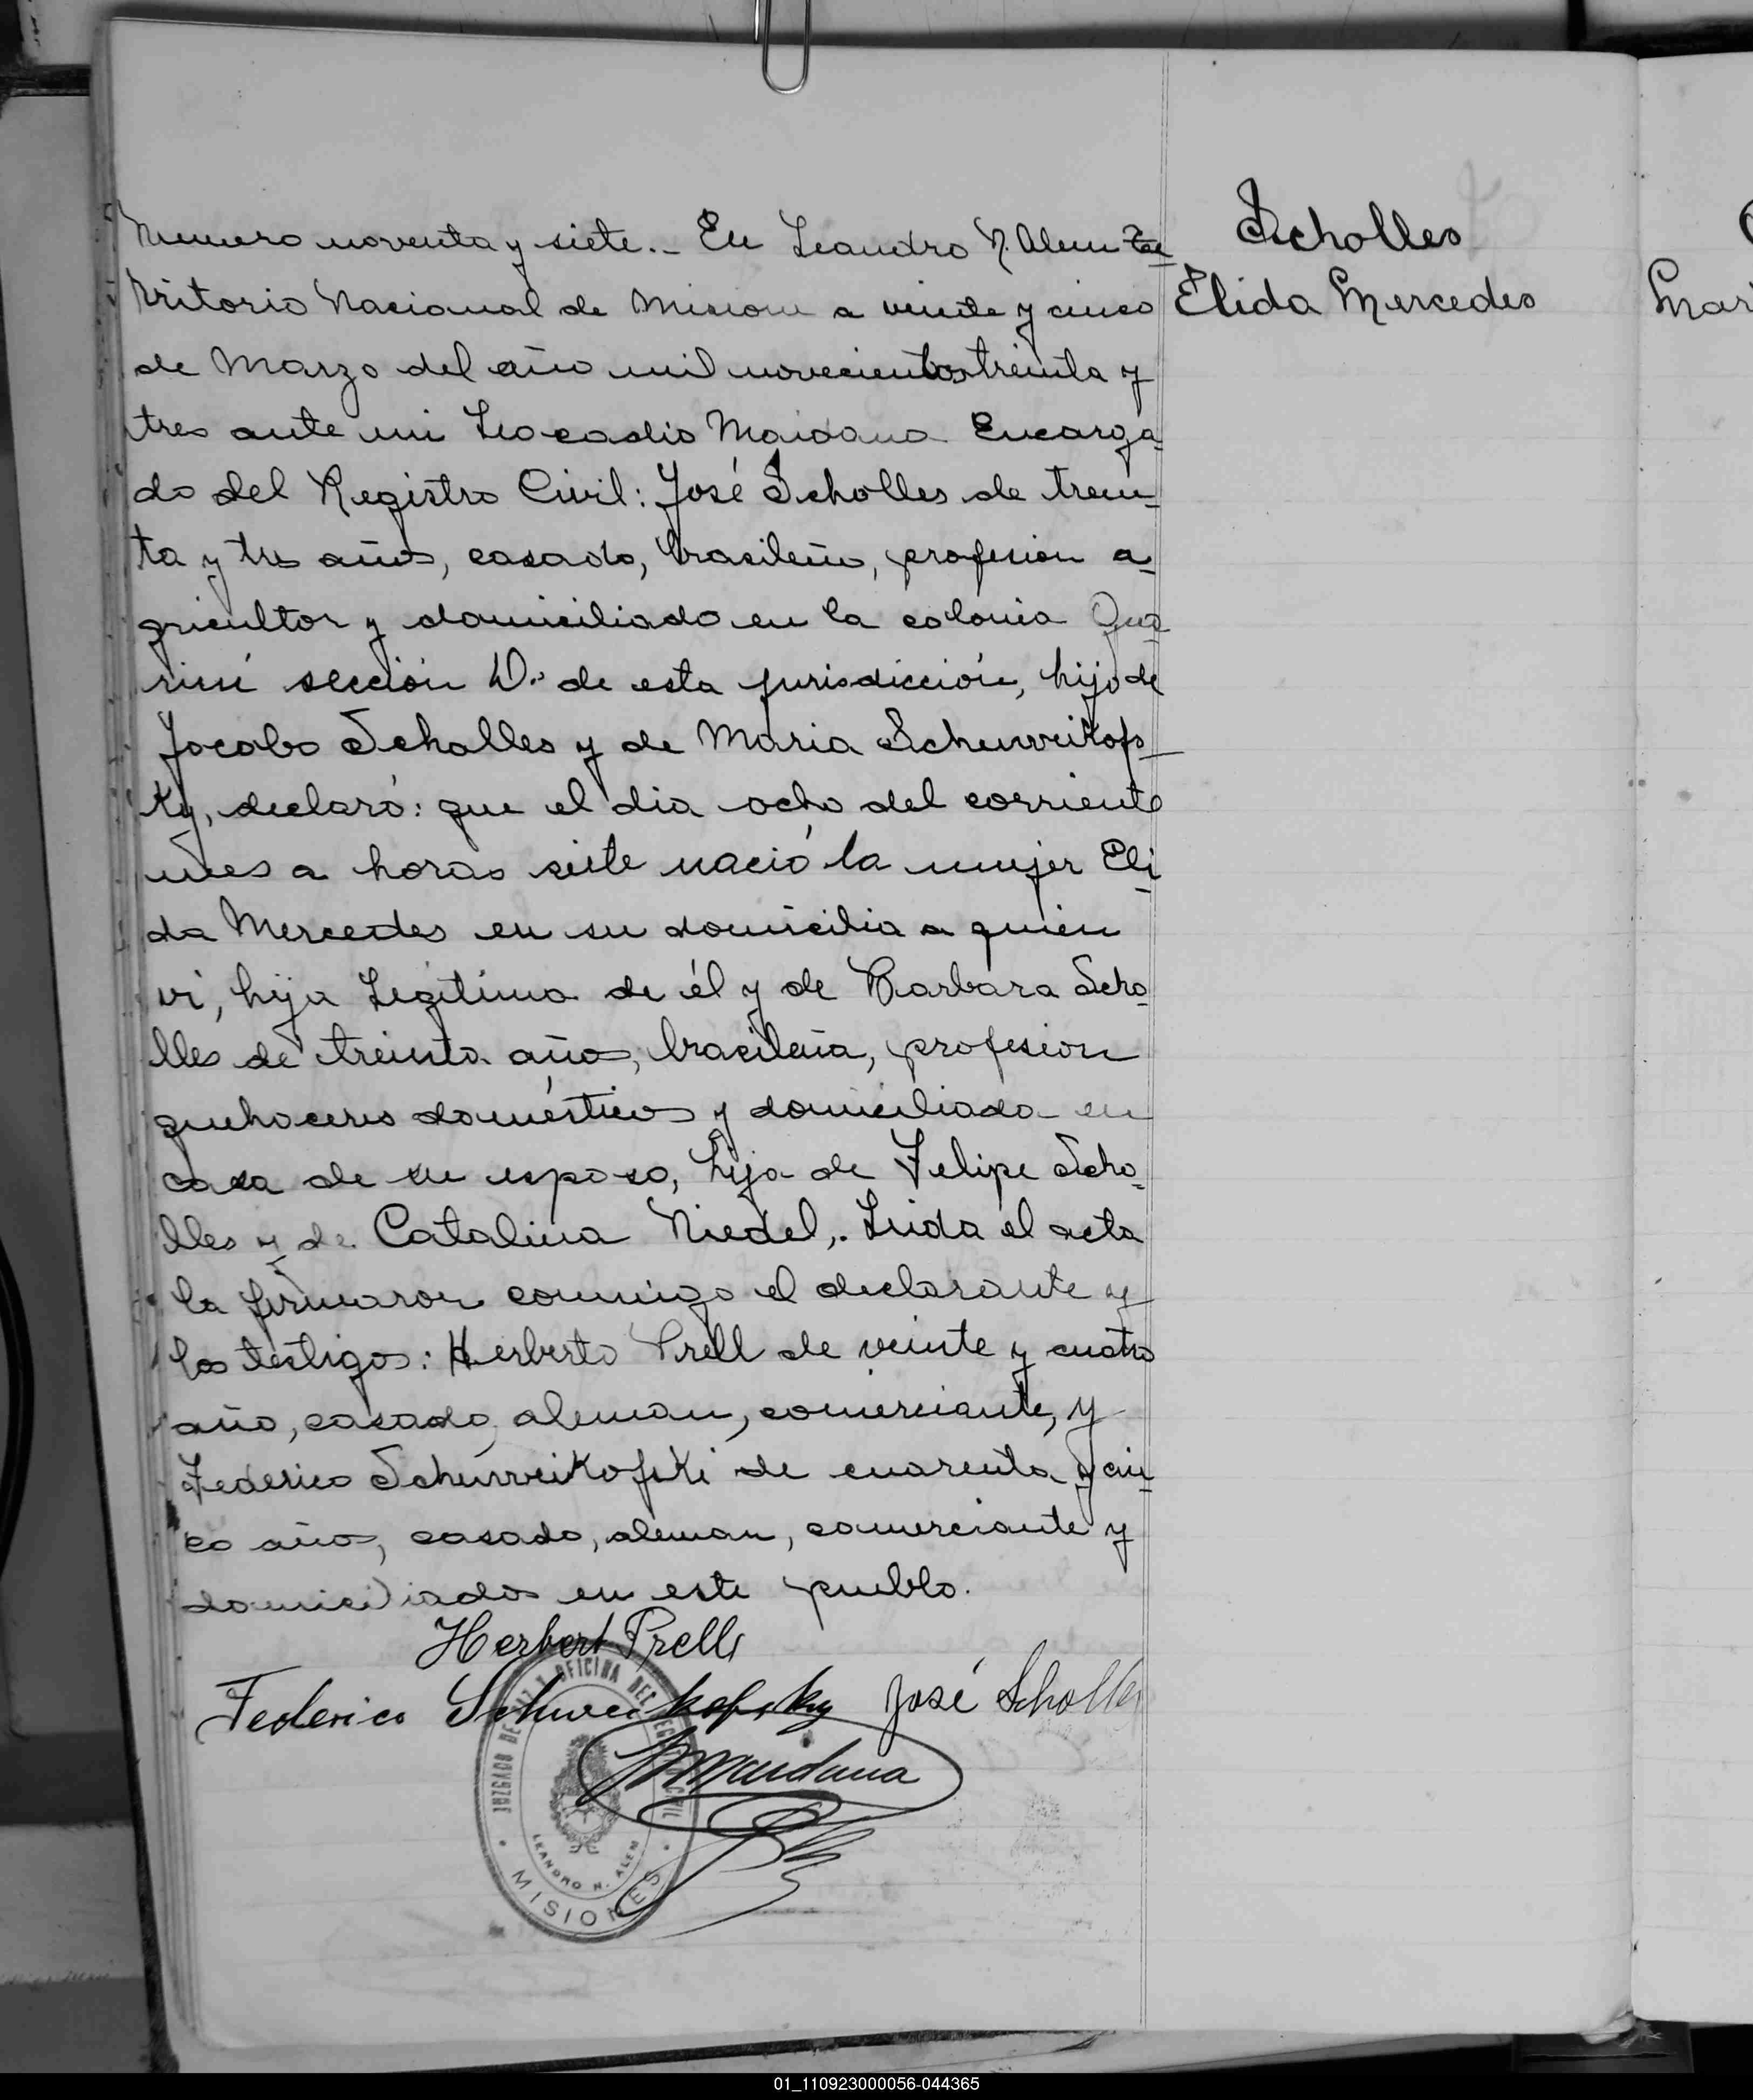 Numero noventa y siete.- En Leandro N. Alem Te-
rritorio Nacional de Mision a veinte y cinco
de Marzo del año mil novecientos treinta y
tres ante mi Leocadio Maidana Encarga-
do del Registro Civil: José Scholles de trein-
ta y tres años, casado, brasileño, profesion a-
gricultor y domiciliado en la colonia
sección D. de esta jurisdicción, hijo de
Jacobo Scholles y de Maria Schurveikofs-
ky, declaró: que el dia ocho del corriente
mes a horas siete nació la mujer Eli-
da Mercedes en su domicilio a quien
vi, hija Legítima de él y de Barbara Scho-
lles de treinta años, brasileña, profesion
quehaceres domésticos y domiciliada en
casa de su esposo, hija de Felipe Scho-
lles y de Catalina Niedel,. Leida el acta
la firmaron conmigo el declarante y
los testigos: Herberto Prell de veinte y cuatro
año, casado, aleman, comerciante, y
Federico Schurveikofski de cuarenta y cin-
co años, casado, aleman, comerciante y
domiciliados en este pueblo.
Herbert Prell
Federico Schweikofsky José Scholles
Maidana
JUZGADO DE PAZ Y OFICINA DEL REGISTRO CIVIL
LEANDRO N. ALEM
MISIONES
Scholles
Elida Mercedes
Mar
01_110923000056-044365